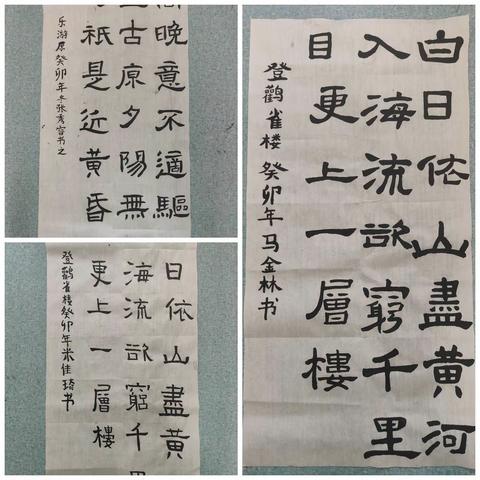 晚意不適驅
古原夕陽無
祇是近黃昏
乐游原癸卯年冬张秀宫书之
日依山盡黃
海流欲窮千
更上一層樓
登鹳雀楼癸卯年米佳琦书
白日依山盡黃河
入海流欲窮千里
目更上一層樓
登鹳雀楼 癸卯年马金林书